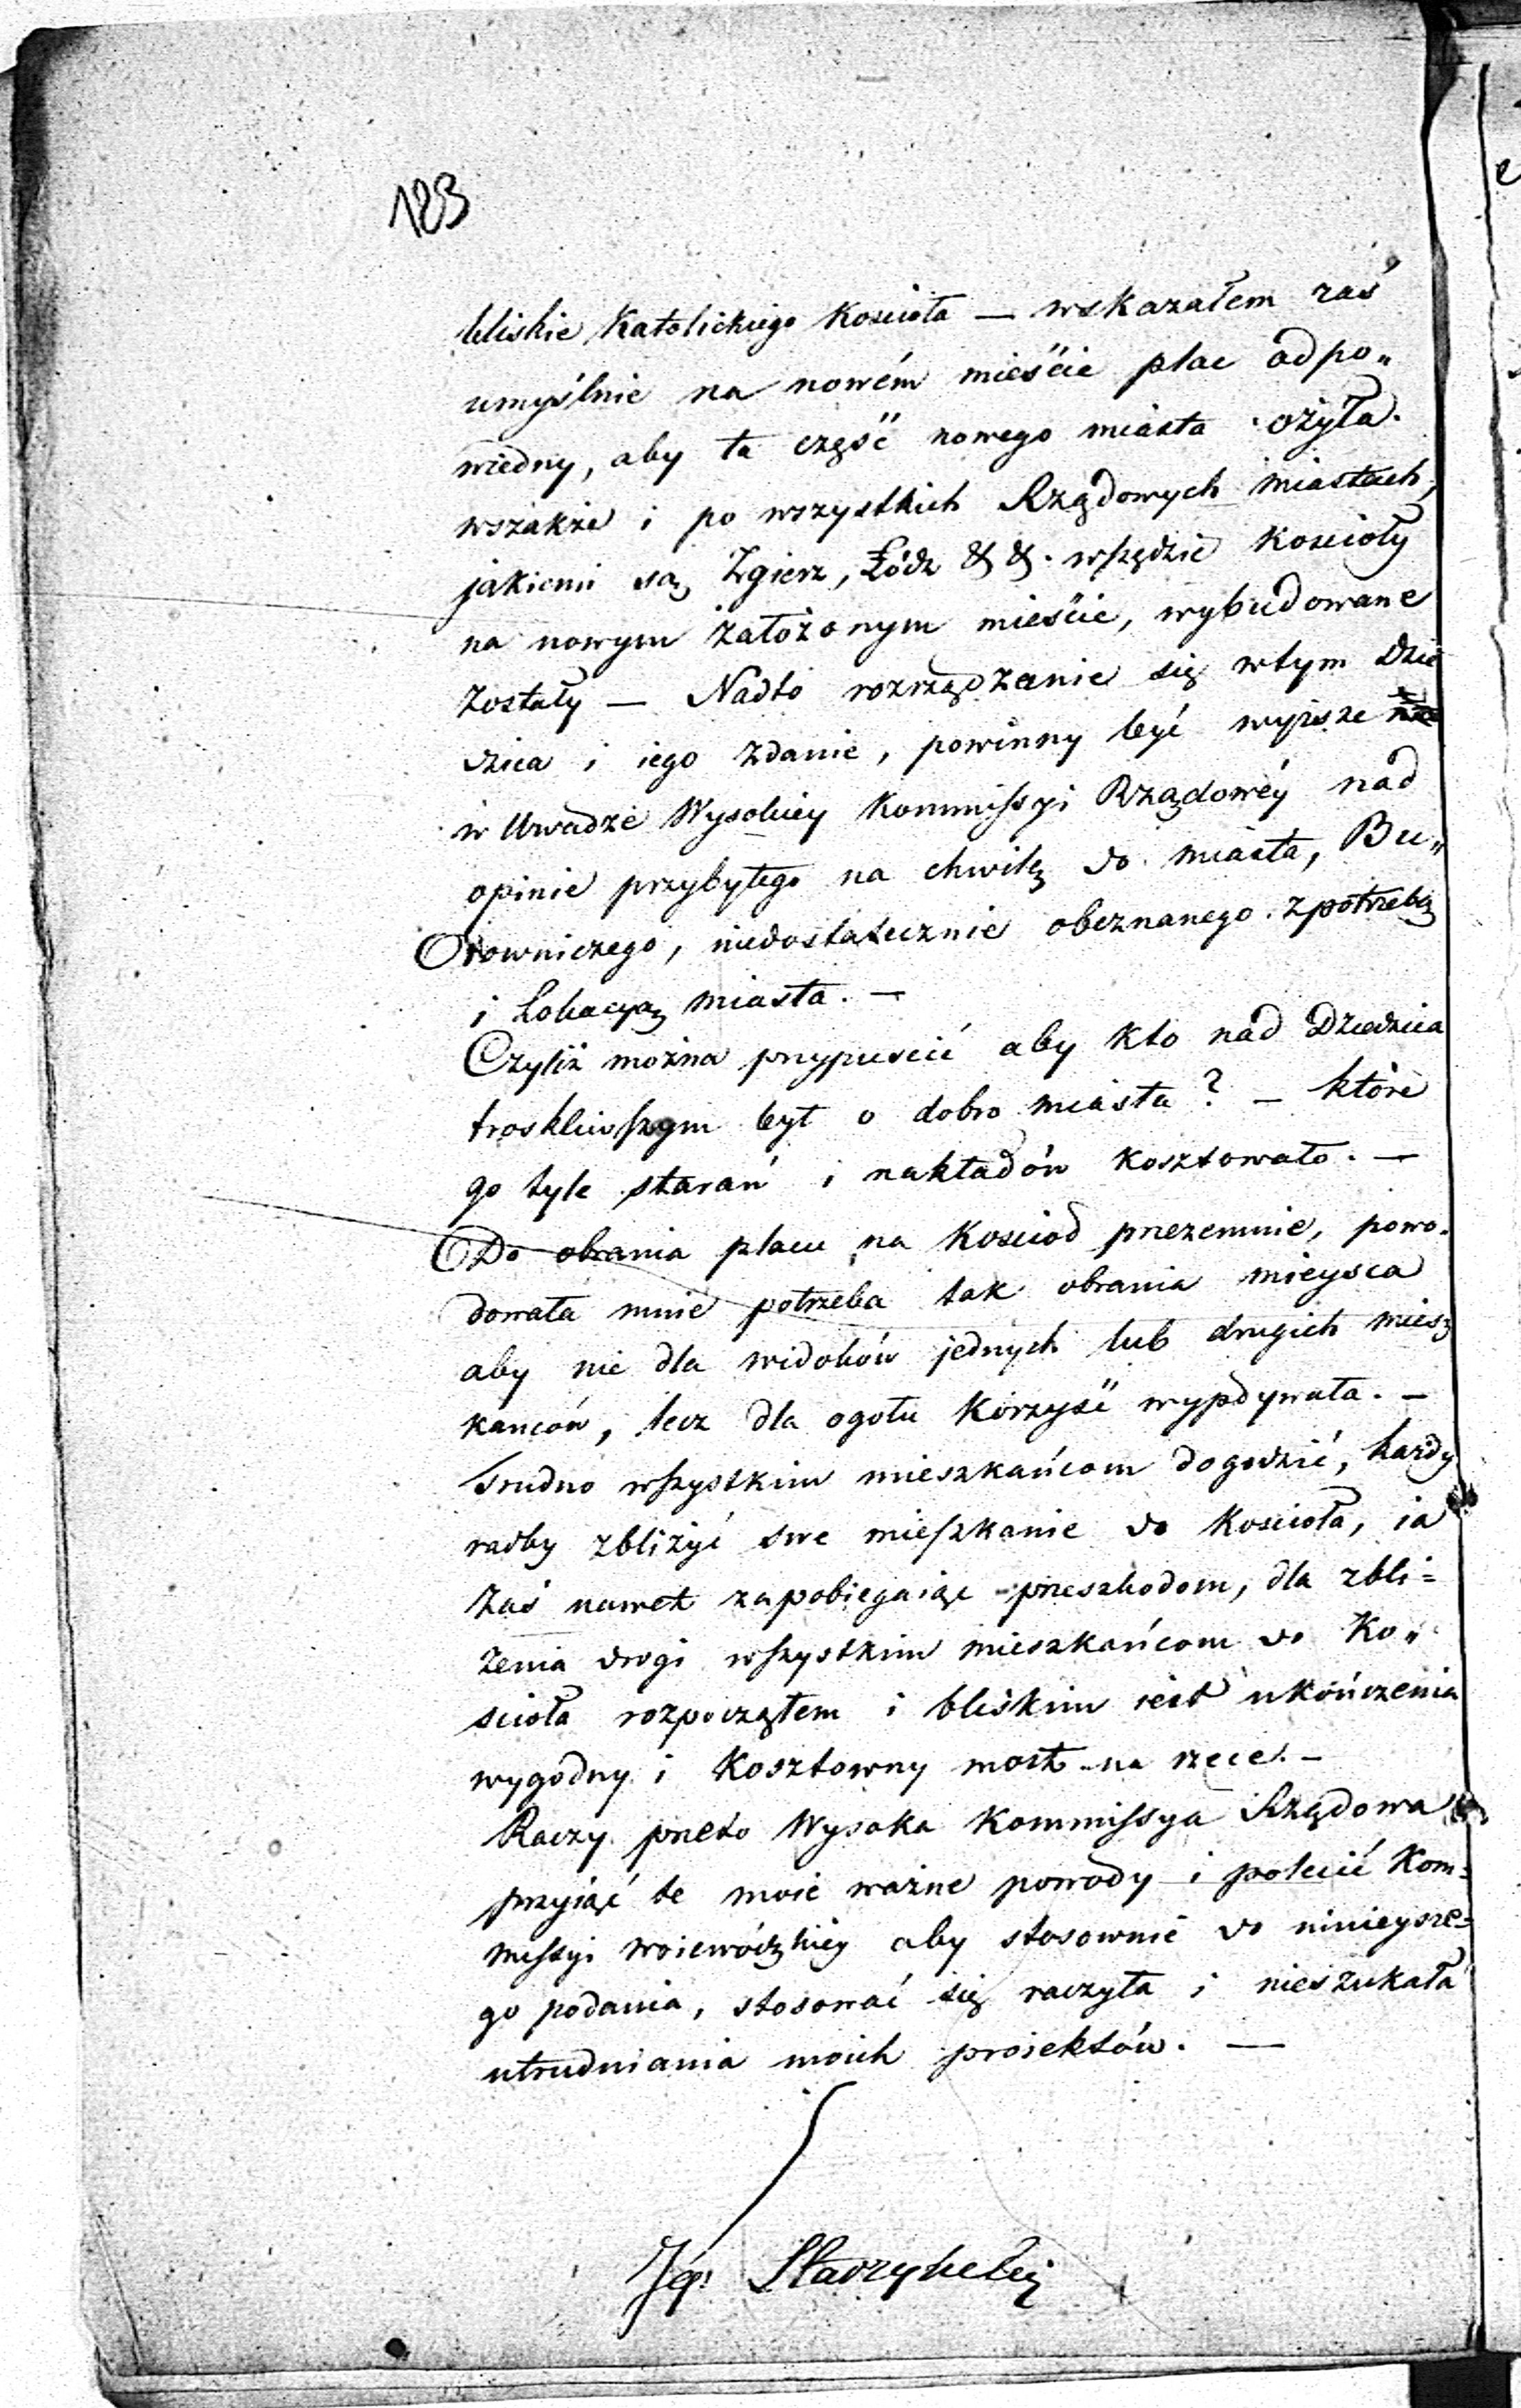 123
bliskie Katolickiego Kościoła — wskazałem zaś
umyślnie na nowém mieście plac odpo„
wiedny, aby ta część nowego miasta ożyła.
wszakże i po wszystkich Rządowych miastach,
jakiemi są Zgierz, Łódz & &. wszędzie Kościoły
na nowym założonym mieście, wybudowane
zostały — Nadto rozrządzanie się wtym Dzie
dzica i iego zdanie, powinny być wyższe
w Uwadze Wysokiey Kommissyi Rządowéy nad
opinie przybyłego na chwilę do miasta, Bu„
downiczego, niedostatecznie obeznanego z potrzebą
i Lokacyą miasta. —
Czyliż można przypuścić aby kto nad Dziedzica
troskliwszym był o dobro miasta? — które
go tyle starań i nakładów kosztowało. —
Do obrania placu na Kościoł przezemnie, powo„
dowała mnie potrzeba tak obrania mieysca
aby nie dla widoków jednych lub drugich miesz
kanców, lecz dla ogołu korzyść wypływała. —
Trudno wszystkim mieszkańcom dogodzić, każdy
radby zbliżyć swe mieszkanie do Kościoła, ia
zaś nawet zapobiegaiąc przeszkodom, dla zbli=
żenia drogi wszystkim mieszkańcom do Ko„
ścioła rozpocząłem i bliskim iest ukończenia
wygodny i Kosztowny most na rzece. —
Raczy przeto Wysoka Kommissya Rządowa
przyiąć te moie ważne powody i polecić Kom=
missyi woiewódzkiey aby stosownie do ninieysze=
go podania, stosować się raczyła i nieszukała
utrudniania moich proiektów. —
Ig: Starzyński